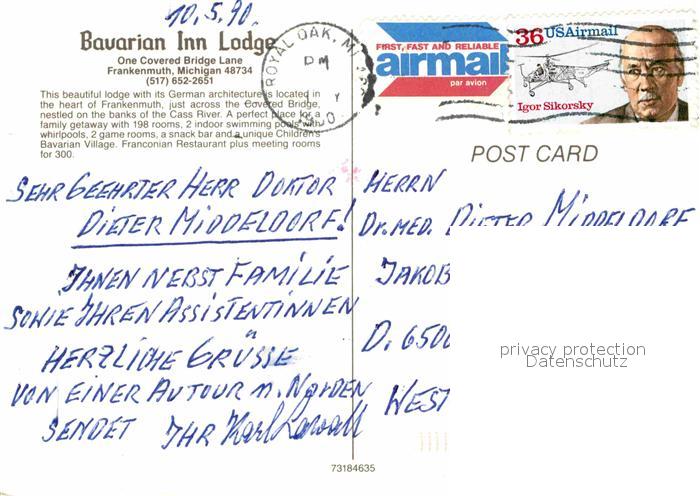 10.5.90.
Bavarian Inn Lodge
One Covered Bridge Lane
Frankenmuth, Michigan 48734
(517) 652-2651
This beautiful lodge with its German architecture is located in
the heart of Frankenmuth, just across the Covered Bridge,
nestled on the banks of the Cass River. A perfect place for a
family getaway with 198 rooms, 2 indoor swimming pools with
whirlpools, 2 game rooms, a snack bar and a unique Children's
Bavarian Village. Franconian Restaurant plus meeting rooms
for 300.
ROYAL OAK, MI
PM
FIRST, FAST AND RELIABLE
airmail
par avion
36 USAirmail
Igor Sikorsky
POST CARD
SEHR GEEHRTER HERR DOKTOR
DIETER MIDDELDORF!
IHNEN NEBST FAMILIE
SOWIE IHREN ASSISTENTINNEN
HERZLICHE GRÜSSE
VON EINER AUTOUR n. NORDEN
SENDET IHR Karl
HERRN
Dr. MED. DIETER MIDDELDORF
JAKOB
D. 6500
WEST
privacy protection
Datenschutz
73184635